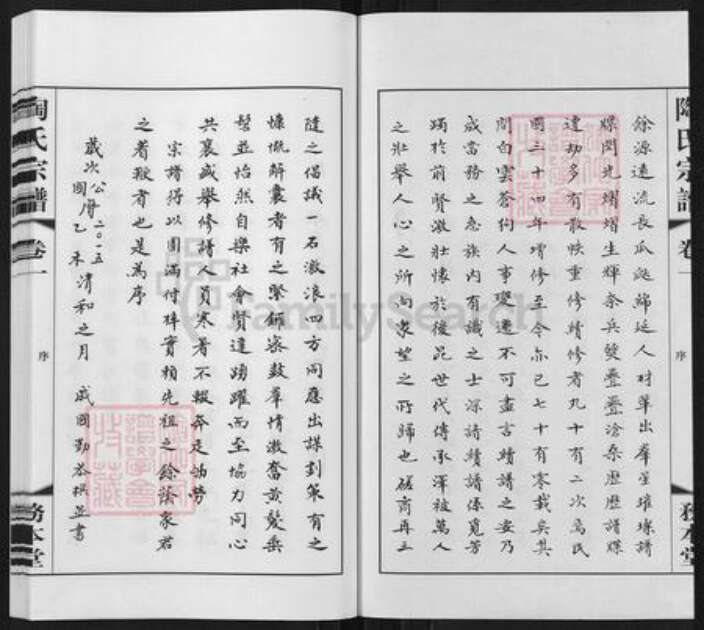 陶氏宗譜
卷一
序
務本堂
餘源遠流長瓜瓞綿延人材輩出羣星璀璨譜
牒閃光熠熠生輝奈兵燹疊疊滄桑歷歷譜牒
遭劫多有散帙重修續修者凡十有二次焉民
國三十四年增修至今亦已七十有寒載矣其
間白雲蒼狗人事變遷不可盡言續譜之要乃
成當務之急族內有識之士深諳續譜係覓芳
躅於前賢激壯懷於後昆世代傳承澤被萬人
之壯舉人心之所向眾望之所歸也磋商再三
隨之倡議一石激浪四方同應出謀劃策有之
慷慨解囊者有之緊鑼密鼓羣情激奮黃髮垂
髫並怡然自樂社會賢達踴躍而至協力同心
共襄盛舉修譜人員寒暑不輟奔走劬勞
宗譜得以圓滿付梓實賴先祖之餘蔭家君
之者歟者也是為序
歲次公曆二〇一五
國曆乙未清和之月 戚國勤恭撰並書
陶氏宗譜
卷一
序
務本堂
FamilySearch